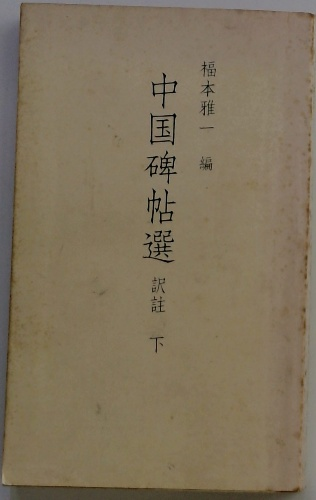 福本雅一 編
中国碑帖選 訳註 下